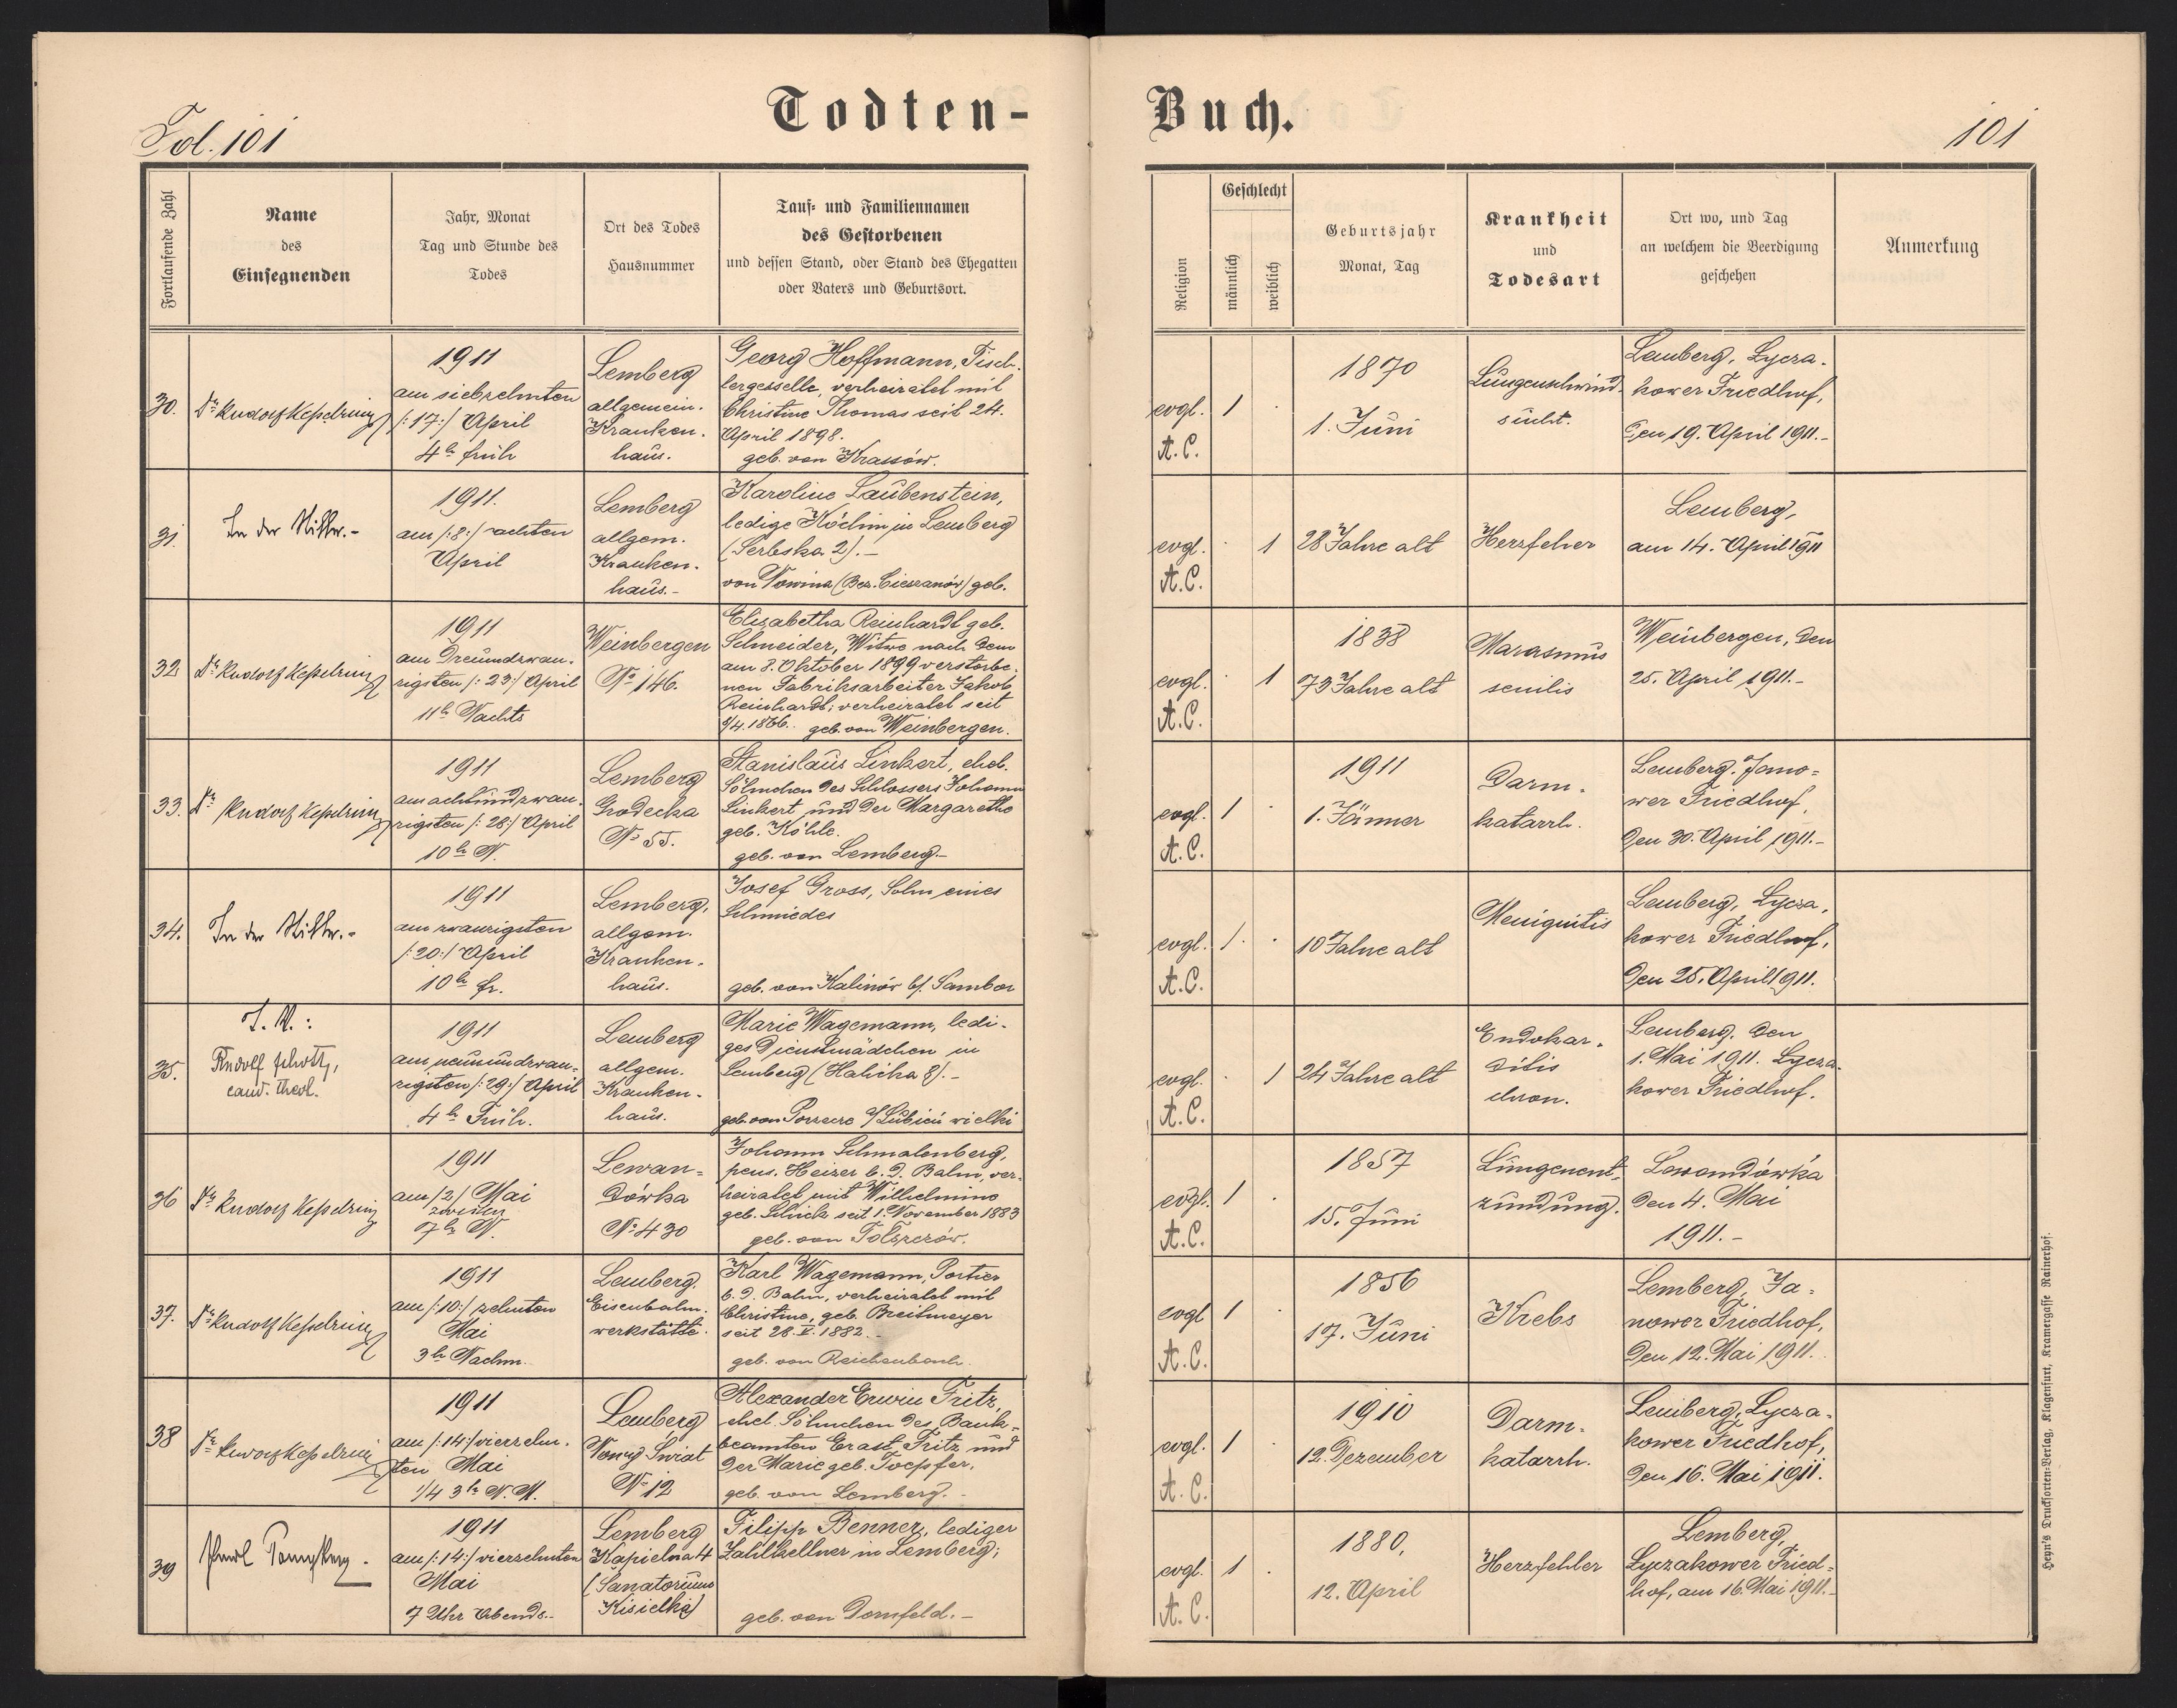 Fol. 101
Todten-
Buch.
101
Fortlaufende Zahl
Name
des
Einsegnenden
Jahr, Monat
Tag und Stunde des
Todes
Ort des Todes
Hausnummer
Tauf- und Familiennamen
des Gestorbenen
und dessen Stand, oder Stand des Ehegatten
oder Vaters und Geburtsort.
Religion
Geschlecht
männlich
weiblich
Geburtsjahr
Monat, Tag
Krankheit
und
Todesart
Ort wo, und Tag
an welchem die Beerdigung
geschehen
Anmerkung
30.
Dr Rudolf Kesselring
1911
am siebzehnten
/:17:/ April
4h früh
Lemberg
allgemein.
Kranken-
haus.
Georg Hoffmann, Tisch-
lergeselle, verheiratet mit
Christine Thomas seit 24.
April 1898.
geb. von Krassów.
evgl.
A.C.
1
1870
1. Juni
Lungenschwind-
sucht.
Lemberg, Lycza-
kower Friedhof,
den 19. April 1911.-
31.
In der Stille.-
1911.
am /:8:/ achten
April
Lemberg
allgem.
Kranken-
haus.-
Karoline Laubenstein,
ledige Köchin in Lemberg
(Serbska 2).-
von Nowina (Bez. Cieszanów) geb.
evgl.
A.C.
1
28 Jahre alt
Herzfehler
Lemberg,
am 14. April 1911
32
Dr Rudolf Kesselring
1911
am dreiundzwan-
zigsten /:23:/ April
11h Nachts
Weinbergen
No 146.
Elisabetha Reinhardt geb.
Schneider, Witwe nach dem
am 8. Oktober 1899 verstorbe-
nen Fabriksarbeiter Jakob
Reinhardt; verheiratet seit
/4.1866. geb. von Weinbergen.
evgl.
A.C.
1
1838
73 Jahre alt
Marasmus
senilis
Weinbergen, den
25. April 1911.-
33.
Dr Rudolf Kesselring
1911
am achtundzwan-
zigsten /:28:/ April
10h N.
Lemberg
Grodecka
No 55.
Stanislaus Linkert, ehel.
Söhnchen des Schlossers Johann
Linkert und der Margarethe
geb. Köhle.
geb. von Lemberg.-
evgl.
A.C.
1
1911
1. Jänner
Darm-
katarrh.
Lemberg. Jano-
wer Friedhof,
den 30. April 1911.-
34.
In der Stille.-
1911
am zwanzigsten
/:20:/ April
10h fr.
Lemberg,
allgem.
Kranken-
haus.
Josef Gross, Sohn eines
Schmiedes
geb. von Kalinów b/. Sambor
evgl.
A.C.
1.
10 Jahre alt
Meniguitis
Lemberg, Lycza-
kower Friedhof,
den 25. April 1911.
35.
I. V.:
Rudolf
cand. theol.
1911
am neunundzwan-
zigsten /:29:/ April
4h Früh.
Lemberg
allgem.
Kranken-
haus.
Marie Wagemann, ledi-
ges Dienstmädchen in
Lemberg (Halicka 8).-
geb. von Porzecze Lubień wielki
evgl.
A.C.
1
24 Jahre alt
Endokar-
ditis
chron.
Lemberg. den
1. Mai 1911. Lycza-
kower Friedhof.
36
Dr Rudolf Kesselring
1911
am /2/ Mai
zweiten
7h N.
Lewan-
dówka
No 430
Johann Schmalenberg,
pens. Heizer b. d. Bahn, ver-
heiratet mit Wilhelmine
geb. Schick seit 1. November 1883
geb. von Tolszczów.
evgl.
A.C.
1
1857
15. Juni
Lungenent-
zündung.
Lewandówka
den 4. Mai
1911.-
37.
Dr Rudolf Kesselring
1911
am /:10:/ zehnten
Mai
3h Nachm.
Lemberg.
Eisenbahn-
werkstätte.
Karl Wagemann, Portier
b. d. Bahn, verheiratet mit
Christine, geb. Breitmeyer
seit 28.V.1882.-
geb. von Reichenbach.
evgl
A.C.
1
1856
17. Juni
Krebs
Lemberg, Ja-
nower Friedhof,
den 12. Mai 1911.
38
Dr Rudolf Kesselring
1911
am /:14:/ vierzehn-
ten Mai
1/4 3h N.M.
Lemberg
Nowy Swiat
No 12
Alexander Erwin Fritz,
ehel. Söhnchen des Bank-
beamten Ernst Fritz und
der Marie geb. Toepfer.
geb. von Lemberg.-
evgl.
A.C.
1
1910
12. Dezember
Darm-
katarrh.
Lemberg, Lycza-
kower Friedhof,
den 16. Mai 1911.
39
1911
am /:14:/ vierzehnten
Mai
7 Uhr Abends.-
Lemberg
Kapielna 4
(Sanatorium
Kisielka)
Filipp Benner, lediger
Zahlkellner in Lemberg;
geb. von Dornfeld.-
evgl.
A.C.
1
1880,
12. April
Herzfehler
Lemberg,
Lyczakower Fried-
hof, am 16. Mai 1911.-
Heyn's Drucksorten-Verlag, Klagenfurt, Kramergasse Rainerhof.